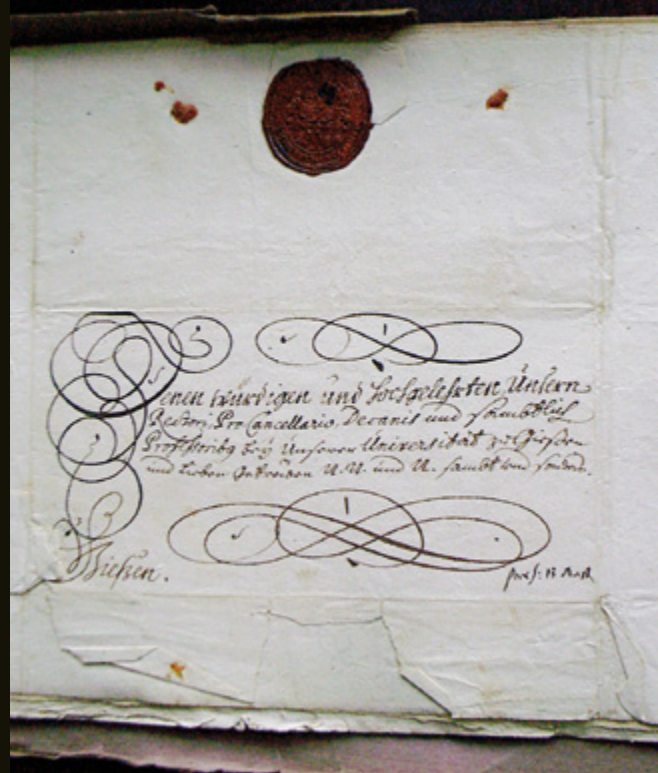 Denen würdigen und Hochgelehrten, Unsern
Rectori, Pro Cancellario, Decanis und sambtlich
Professoribq bey Unserer Universität zu Gießen
und Lieben Getreüen U. U. und U. sambt und sonders.
Gießen.